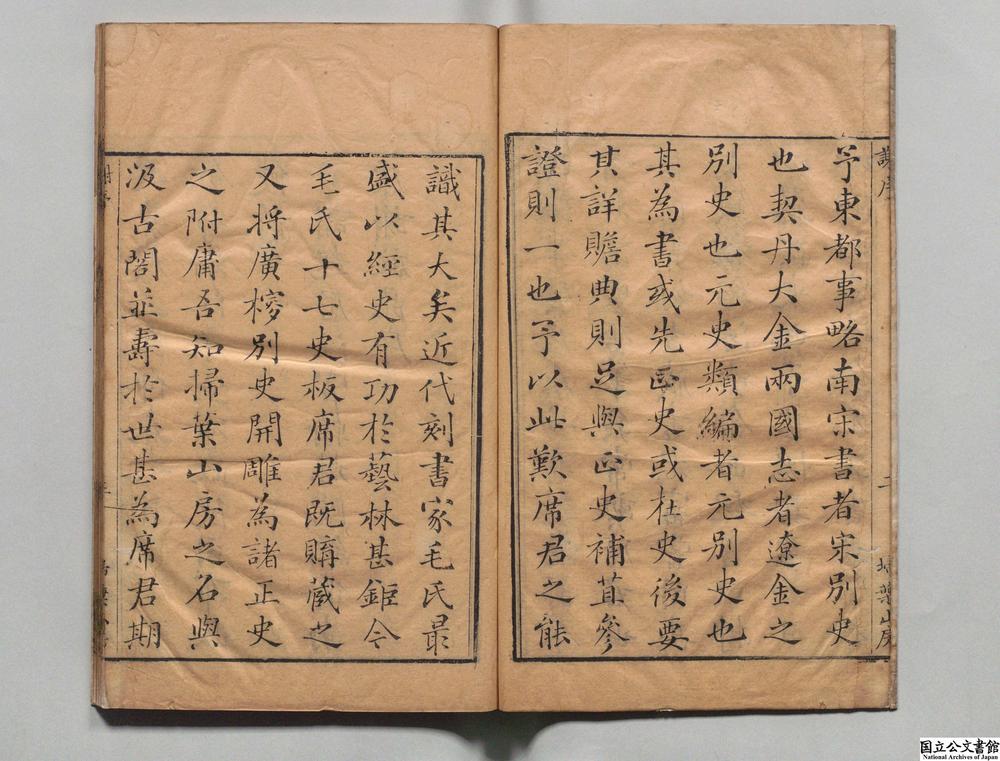 予東都事略南宋書者宋別史
也契丹大金兩國志者遼金之
別史也元史類編者元別史也
其為書或先正史或在史後要
其詳贍典則足與正史補苴參
證則一也予以此歎席君之能
識其大矣近代刻書家毛氏最
盛以經史有功於藝林甚鉅今
毛氏十七史板席君既購藏之
又將廣榜別史開雕為諸正史
之附庸吾知掃葉山房之名與
汲古閣並壽於世甚為席君期
二
掃葉山房
国立公文書館
National Archives of Japan